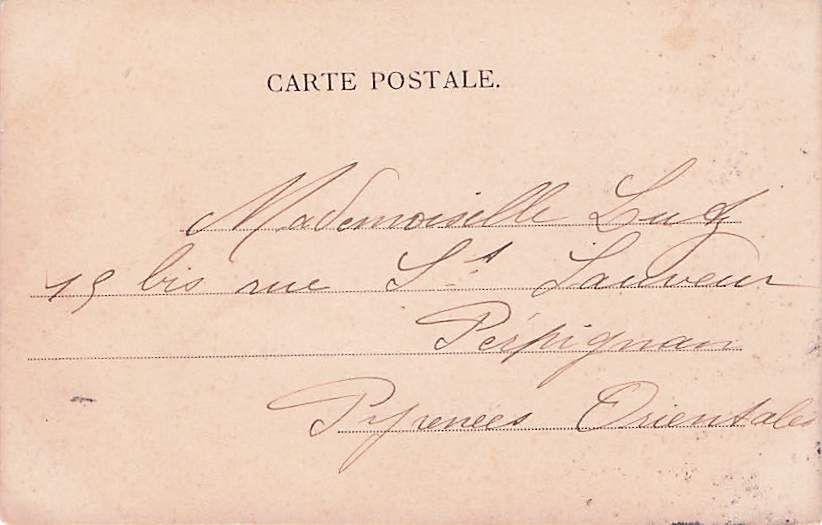 CARTE POSTALE.
Mademoiselle
bis rue St Sauveur
Perpignan
Pyrenées Orientales